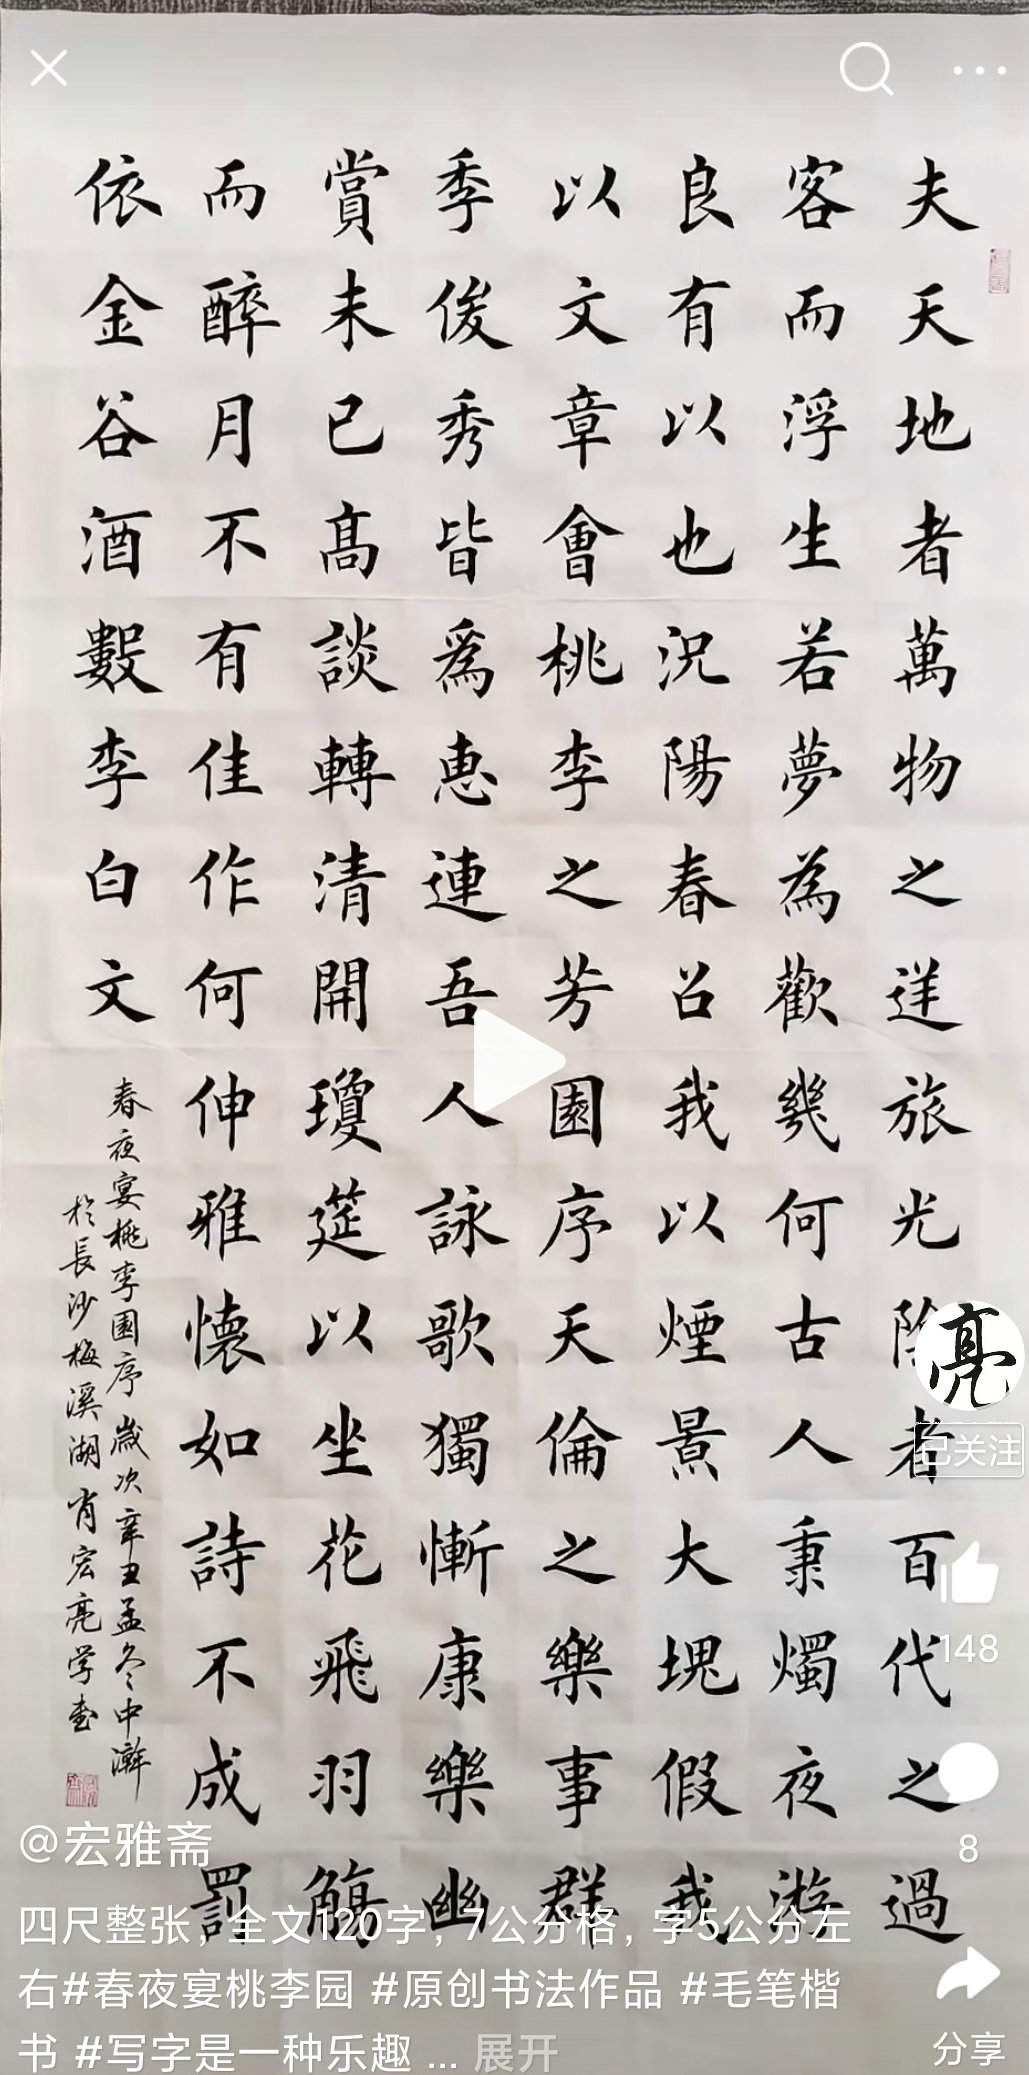 夫天地者萬物之逆旅光陰者百代之過
客而浮生若夢為歡幾何古人秉燭夜游
良有以也況陽春召我以煙景大塊假我
以文章會桃李之芳園序天倫之樂事群
季俊秀皆為惠連吾人詠歌獨慚康樂幽
賞未已高談轉清開瓊筵以坐花飛羽觴
而醉月不有佳作何伸雅懷如詩不成罰
依金谷酒數李白文
春夜宴桃李園序 歲次辛丑孟冬中澣
於長沙梅溪湖肖宏亮学书
亮
已关注
148
8
分享
@宏雅斋
四尺整张，全文120字，7公分格，字5公分左
右#春夜宴桃李园 #原创书法作品 #毛笔楷
书 #写字是一种乐趣 ... 展开